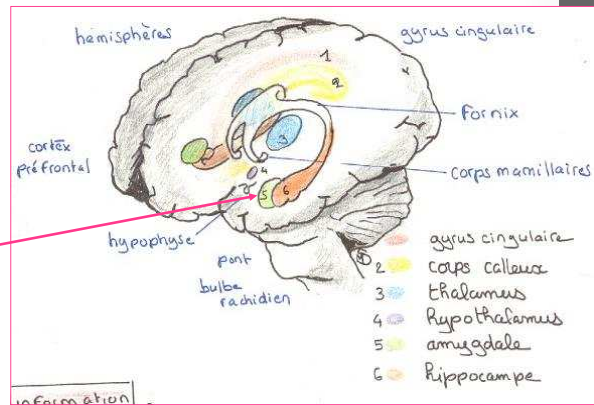 hémisphères
gyrus cingulaire
1
2
Fornix
3
cortex
préfrontal
4
corps mamillaires
5
6
hypophyse
pont
bulbe
rachidien
gyrus cingulaire
2 corps calleux
3 thalamus
4 hypothalamus
5 amygdale
6 hippocampe
information